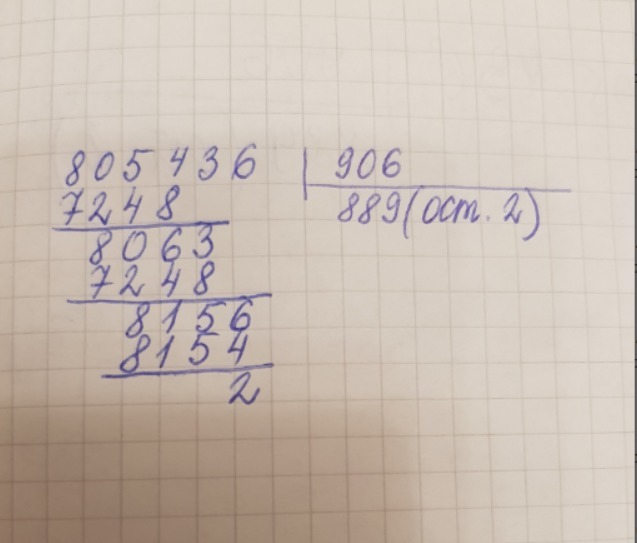 805436 | 906
7248 889(ост. 2)
8063
7248
8156
8154
2